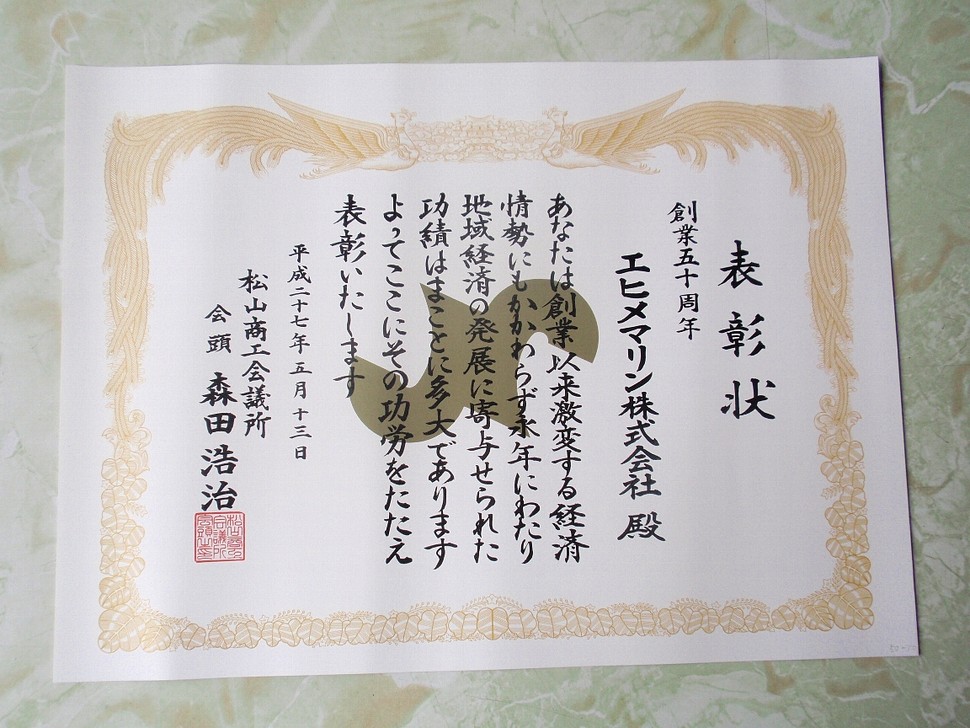 表彰状
創業五十周年
エヒメマリン株式会社 殿
あなたは創業以来激変する経済
情勢にもかかわらず永年にわたり
地域経済の発展に寄与せられた
功績はまことに多大であります
よってここにその功労をたたえ
表彰いたします
平成二十七年五月十三日
松山商工会議所
会頭 森田浩治